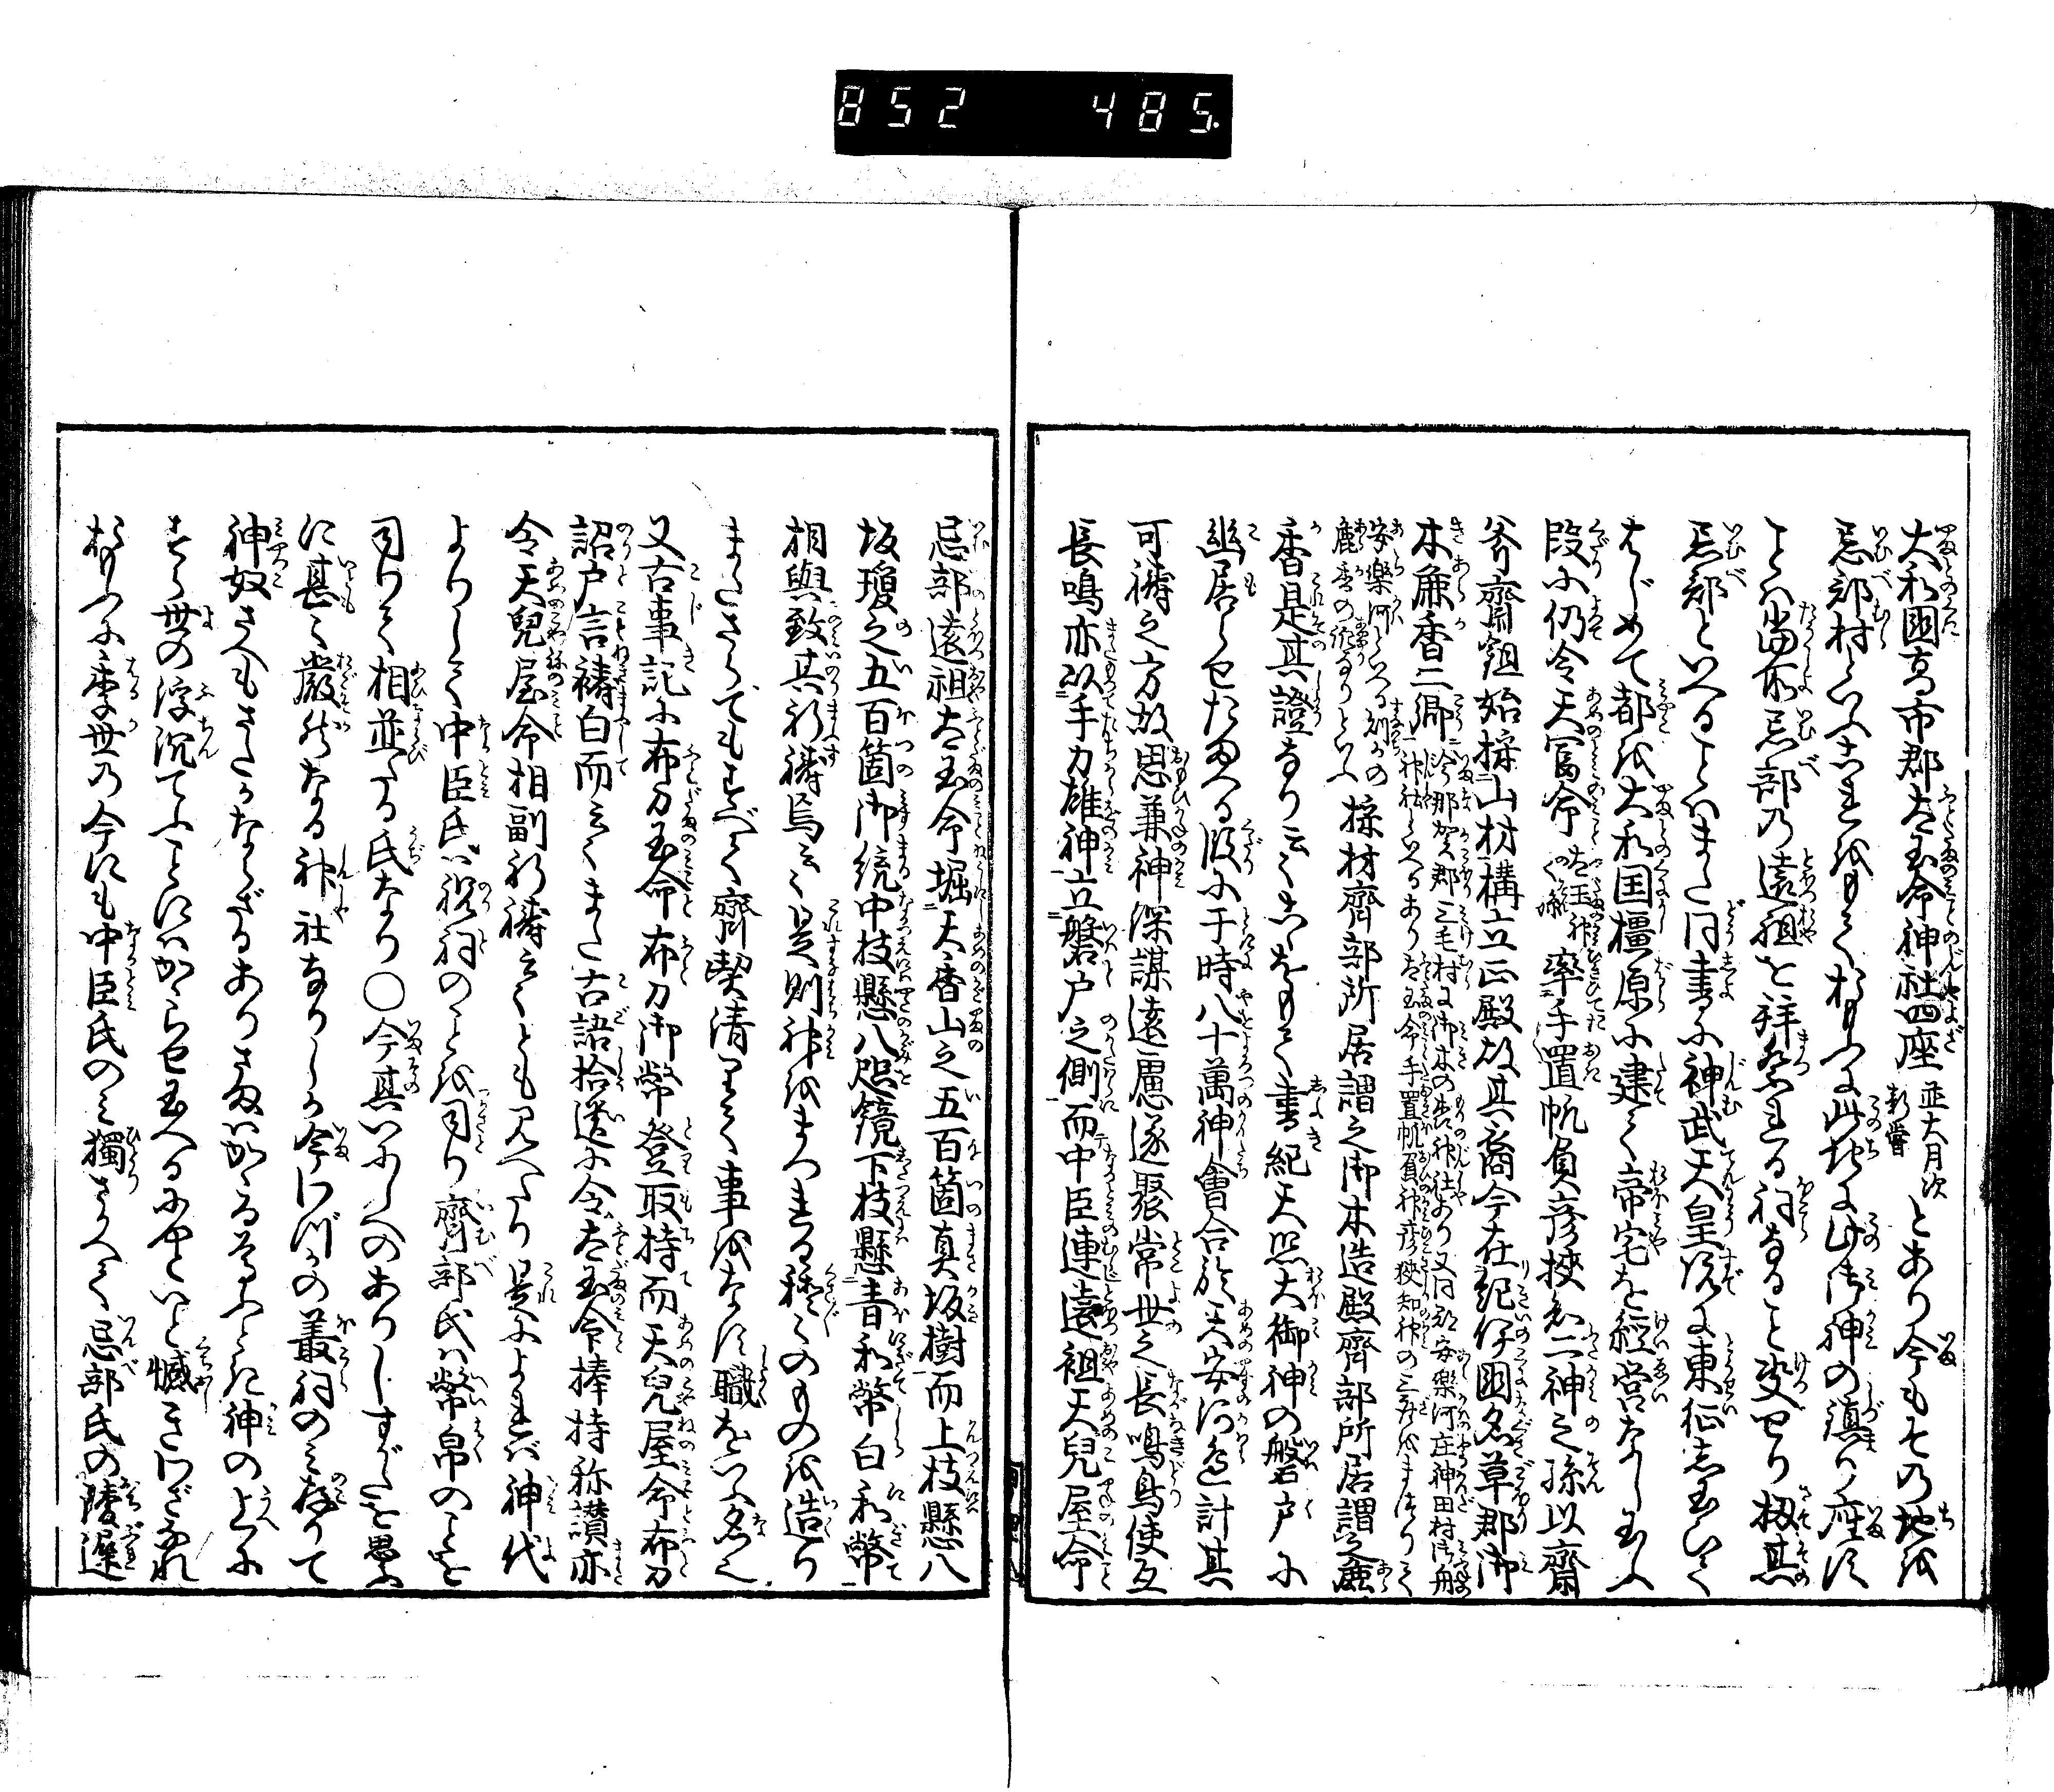 852 485.
大和國高市郡太玉命神社四座 並大月次新嘗 とあり今もその地を
忌部村といふこれをもて於もふに此地に此御神の鎮り座は
ことハ當所忌部乃遠祖を拝祭れる祠なること決せり扨其
忌部といへることハまた同書に神武天皇既に東征志玉ひて
はじめて都を大和国橿原に建て帝宅を經営なし玉ふ
段に仍令天冨命 太玉神の孫 率手置帆負彦狭知二神之孫以齋
斧齋鉏始採山材構立正殿故其裔今在紀伊国名草郡御
木麁香二郷 今那賀郡三毛村に御木の告神社あり又同郡安楽河庄神田村御船
神社といへるあり太玉命手置帆負神彦狭知神の三座をまつりて
安楽河といへる別名の
鹿香の依なりといふ 採材齊部所居謂之御木造殿齊部所居謂之麁
香是其證なり云々あをもて書紀天照大御神の磐戸に
幽居らせたまへる段に于時八十萬神會合於天安河邊計其
可祷之方故思兼神深謀遠慮遂聚常世之長鳴鳥使互
長鳴亦以手力雄神立磐戸之側而中臣連遠祖天兒屋命
忌部遠祖太玉命堀天香山之五百箇真坂樹而上枝懸八
坂瓊之五百箇御統中枝懸八咫鏡下枝懸青和幣白和幣
相與致其祈祷焉云々是則神をまつれる種々のものを造り
またさらでもすべて齊契清まりて事をなす職をいふ名之
又古事記に布刀玉命布刀御幣登取持而天兒屋命布刀
詔戸言祷白而云々また古語拾遺に令太玉命捧持称讃亦
令天兒屋命相副祈祷云々とも見へたり是によれば神代
よりして中臣氏ハ祝詞のことを司り齊部氏ハ幣帛のことを
司りて相並たる氏なり○今其いにしへのありしすがたを思ふ
に甚く嚴然なる神社なりしが今にハ僅の叢祠のミ存りて
神奴さへもさだかならざるありさまハかゝるたふとき神の上に
すら世の浮沉てふことにハかゝらせ玉へるにやといと憾きわざなれ
於もふに季世乃今にも中臣氏のミ獨さかへて忌部氏の陵遲